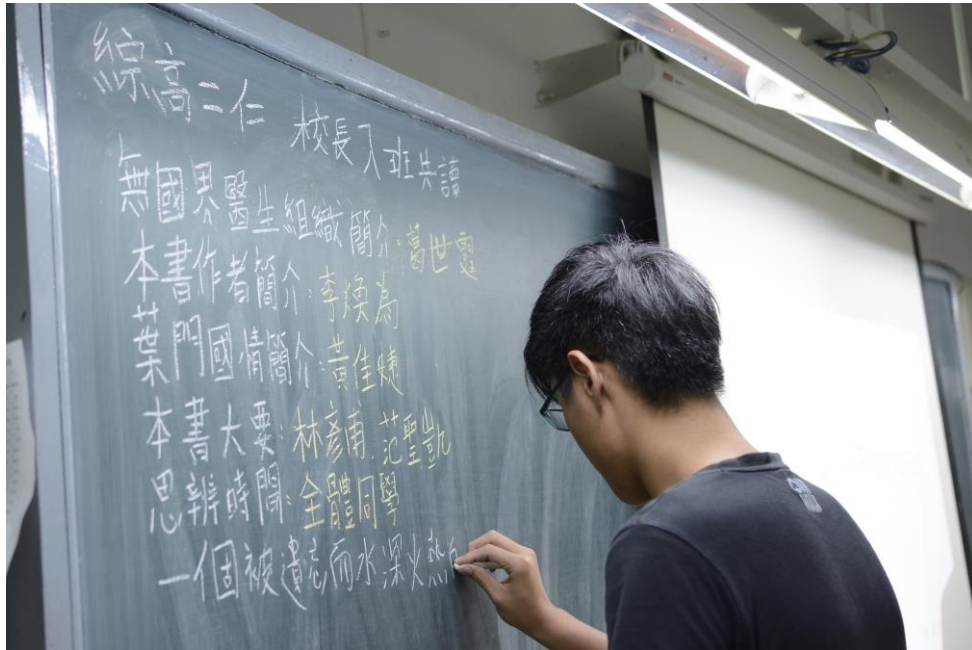 綜高二仁 校長入班共讀
無國界醫生組織簡介:葛世靈
本書作者簡介:李煥為
葉門國情簡介:黃佳婕
本書大要:林彥甫、范聖凱
思辨時間:全體同學
一個被遺忘而水深火熱